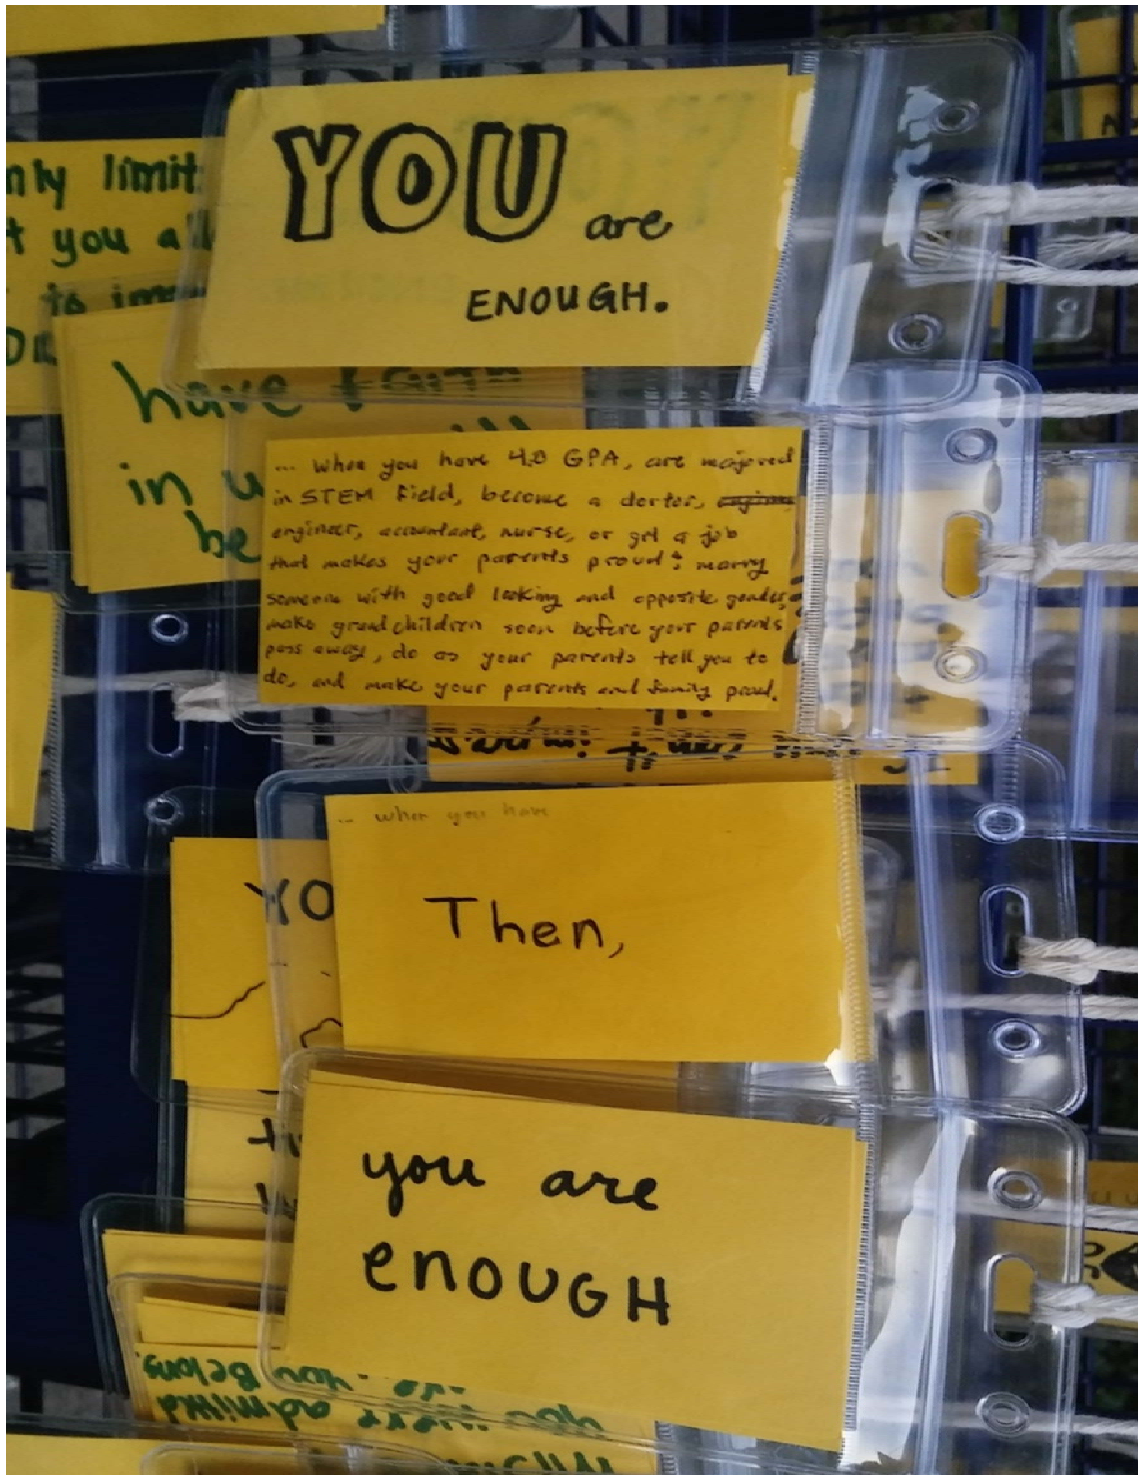 YOU are
ENOUGH.
only limit
t you all
to
have faith
in
be
... When you have 4.0 GPA, are majored
in STEM field, become a doctor,
engineer, accountant, nurse, or get a job
that makes your parents proud; marry
someone with good looking and opposite gender,
make grandchildren soon before your parents
pass away, do as your parents tell you to
do, and make your parents and family proud.
... when you have
Then,
YO
you are
enough
You Belong.
you were admitted